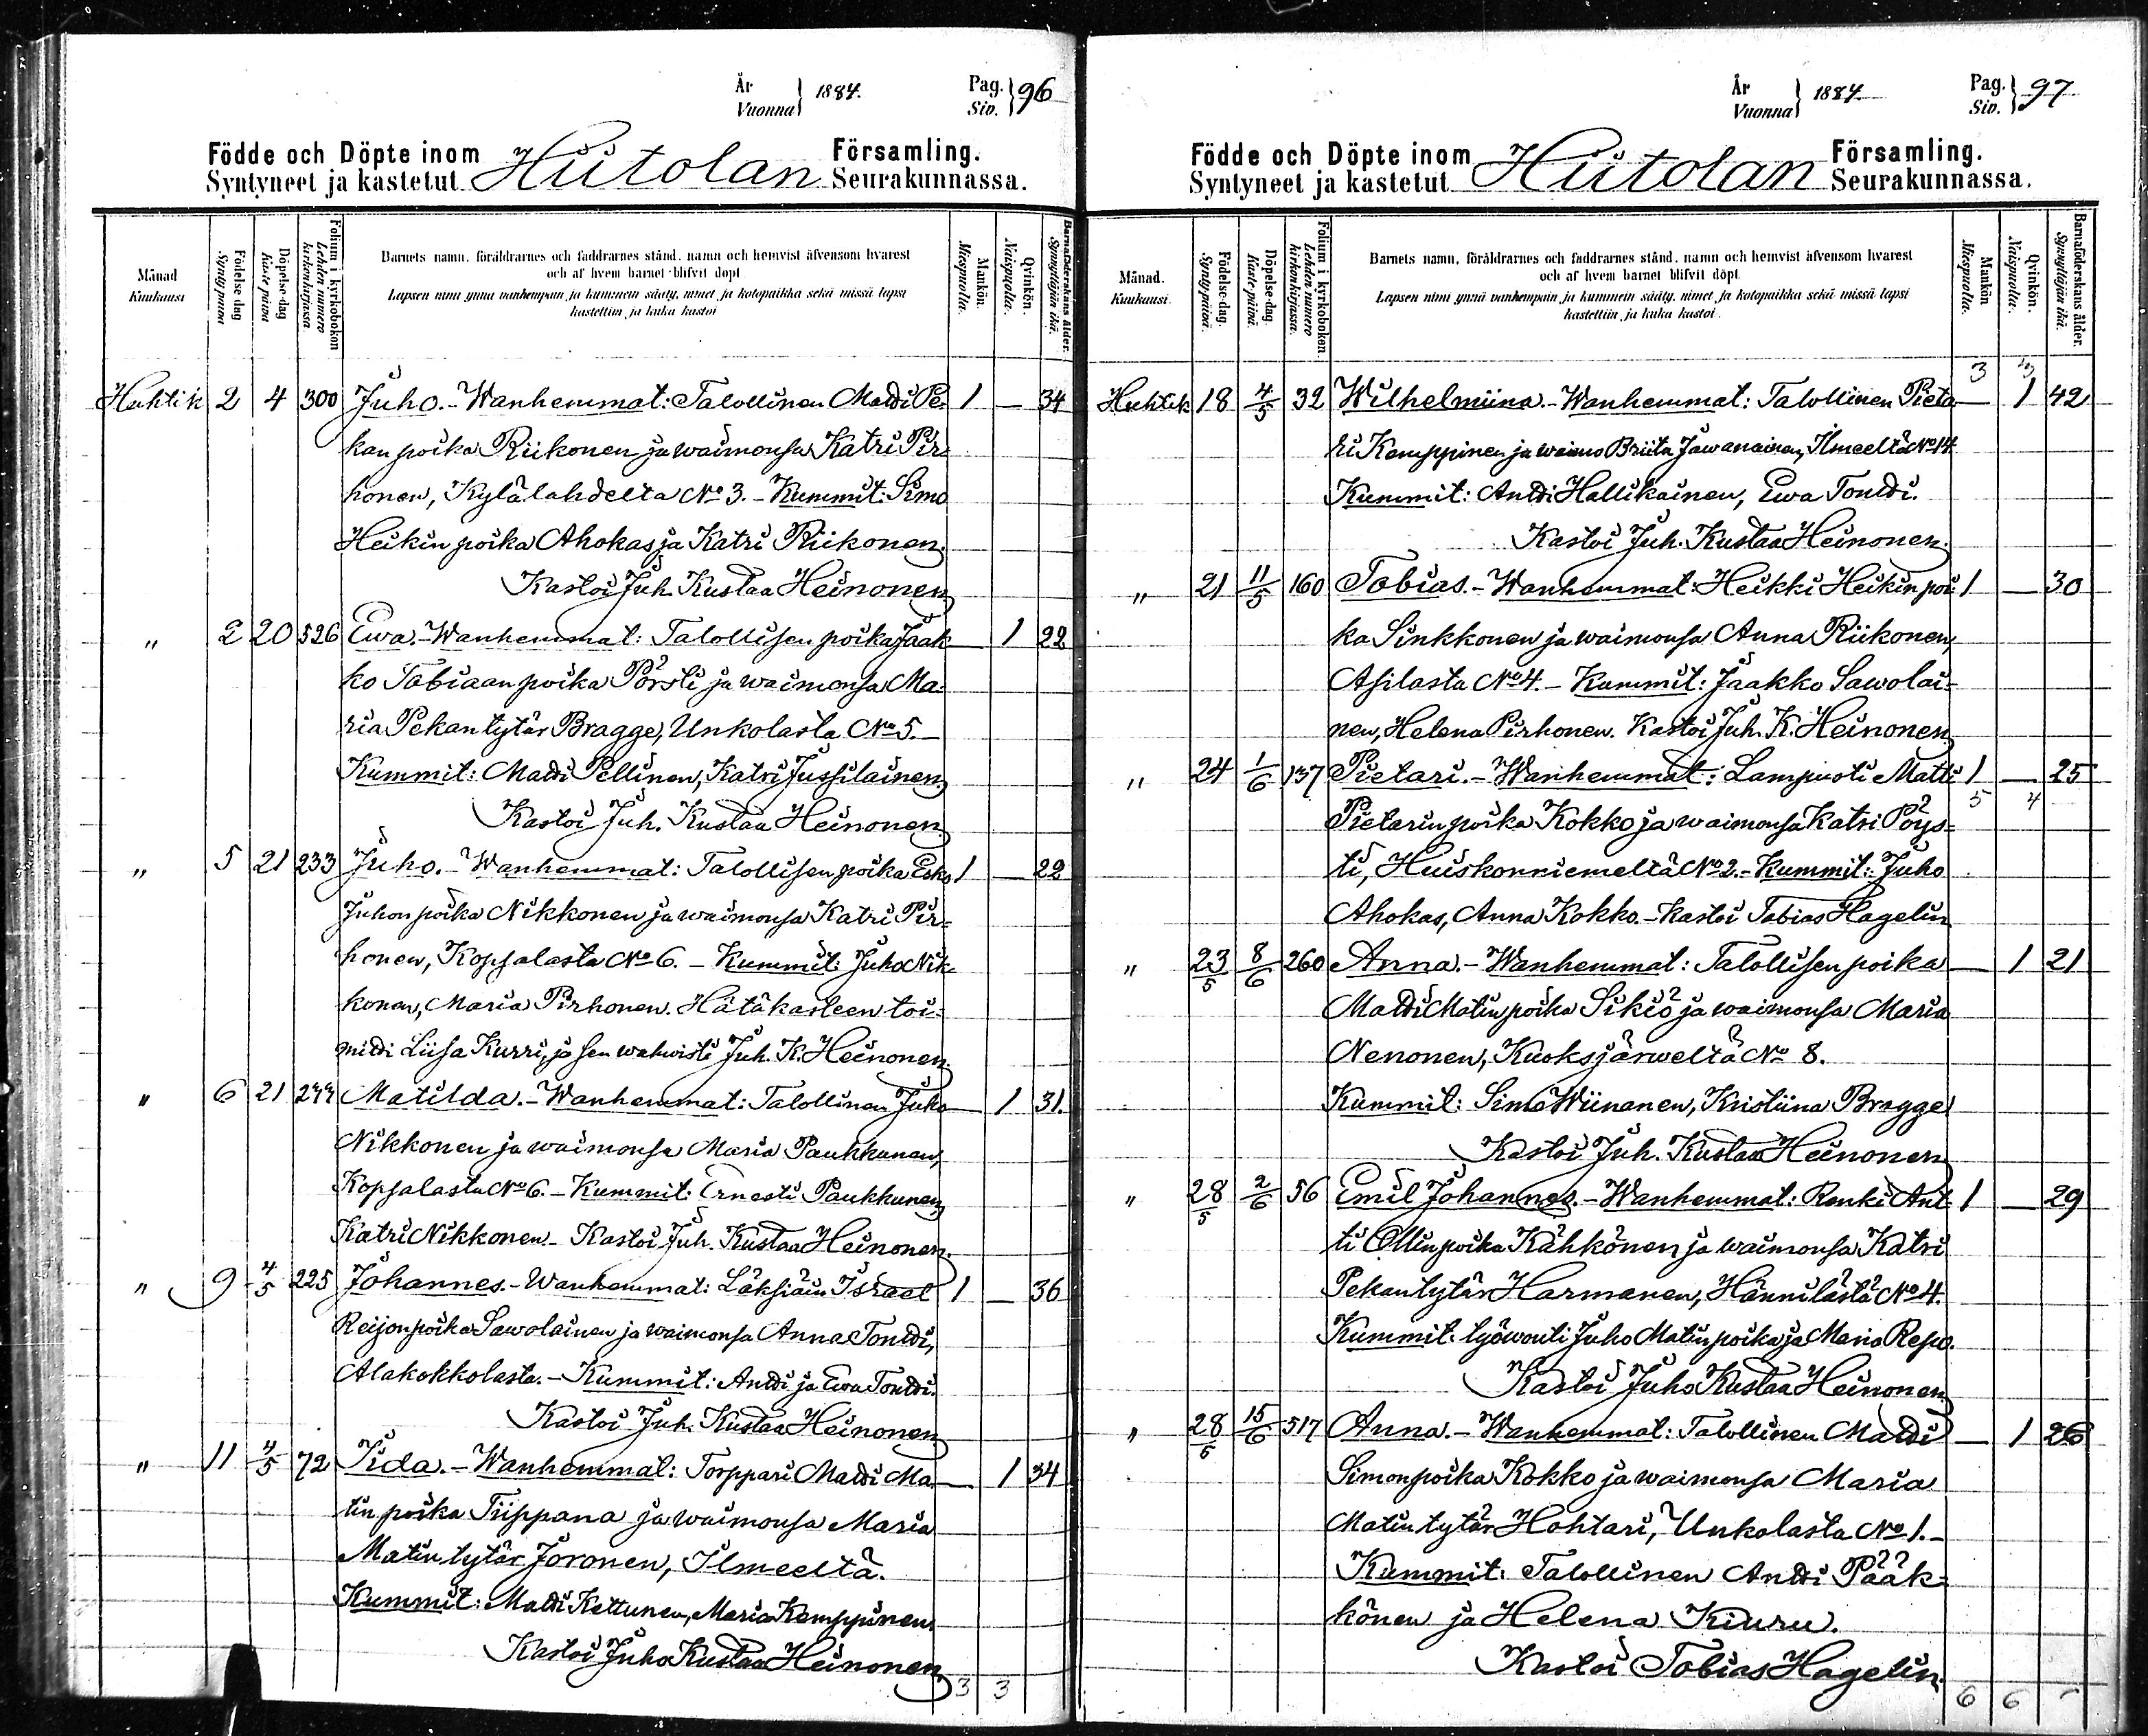 År
Vuonna } 1884.
Pag.
Siv. } 96
Födde och Döpte inom Hiitolan Församling.
Syntyneet ja kastetut Seurakunnassa.
Månad
Kuukausi
Födelse dag
Synty päivä
Döpelse-dag
Kaste päivä
Folium i kyrkoboken
Lehden numero kirkonkirjassa
Barnets namn, föräldrarnes och faddrarnes stånd, namn och hemvist äfvensom hvarest
och af hvem barnet blifvit döpt
Lapsen nimi ynnä vanhempain ja kummein sääty, nimet ja kotopaikka sekä missä lapsi
kastettiin ja kuka kastoi
Mankön.
Miespuolta.
Qvinkön.
Naispuolta.
Barnaföderskans ålder.
Synnyttäjän ikä.
Huhtik 2 4 300 Juho. - Wanhemmat: Talollinen Matti Pe- 1 — 34
kan poika Riikonen ja waimonsa Katri Pir-
honen, Kylälahdelta No 3. - Kummit: Simo
Heikin poika Ahokas ja Katri Riikonen.
Kastoi Juh. Kustaa Heinonen
" 2 20 526 Ewa. - Wanhemmat: Talollisen poika Jaak- — 1 22
ko Tobiaan poika Pörsti ja waimonsa Ma-
ria Pekan tytär Bragge, Unkolasta No 5. -
Kummit: Matti Pellinen, Katri Jussilainen.
Kastoi Juh. Kustaa Heinonen
" 5 21 233 Juho. - Wanhemmat: Talollisen poika Esko 1 — 22
Juhon poika Nikkonen ja waimonsa Katri Pir-
honen, Kopsalasta No 6. - Kummit: Juho Nik-
konen, Maria Pirhonen. Hätäkasteen toi-
mitti Liisa Kurri, ja sen wahwisti Juh. K. Heinonen.
" 6 21 244 Matilda. - Wanhemmat: Talollinen Juho — 1 31.
Nikkonen ja waimonsa Maria Paukkunen,
Kopsalasta No 6. - Kummit: Ernesti Paukkunen,
Katri Nikkonen - Kastoi Juh. Kustaa Heinonen.
" 9 4/5 225 Johannes. - Wanhemmat: Läksiäin Israel 1 — 36
Reijonpoika Sawolainen ja waimonsa Anna Tontti,
Alakokkolasta. - Kummit: Antti ja Ewa Tontti.
Kastoi Juh. Kustaa Heinonen
" 11 4/5 72 Iida. - Wanhemmat: Torppari Matti Ma- — 1 34
tin poika Tiippana ja waimonsa Maria
Matin tytär Joronen, Ilmeeltä.
Kummit: Matti Kettunen, Maria Kemppinen.
Kastoi Juho Kustaa Heinonen
3 3
År
Vuonna } 1884.
Pag.
Siv. } 97
Födde och Döpte inom Hiitolan Församling.
Syntyneet ja kastetut Seurakunnassa.
Månad.
Kuukausi.
Födelse-dag.
Synty päivä.
Döpelse-dag.
Kaste päivä.
Folium i kyrkoboken.
Lehden numero kirkonkirjassa.
Barnets namn, föräldrarnes och faddrarnes stånd, namn och hemvist äfvensom hvarest
och af hvem barnet blifvit döpt.
Lapsen nimi ynnä vanhempain ja kummein sääty, nimet ja kotopaikka sekä missä lapsi
kastettiin ja kuka kastoi.
Mankön
Miespuolta.
Qvinkön.
Naispuolta.
Barnaföderskans ålder.
Synnyttäjän ikä.
3 3
Huhtik 18 4/5 32 Wilhelmiina. - Wanhemmat: Talollinen Pieta- — 1 42
ri Kemppinen ja waimo Briita Jawanainen, Ilmeeltä No 14
Kummit: Antti Hallikainen, Ewa Tontti.
Kastoi Juh. Kustaa Heinonen.
" 21 11/5 160 Tobias. - Wanhemmat: Heikki Heikin poi- 1 — 30
ka Sinkkonen ja waimonsa Anna Riikonen,
Asilasta No 4. - Kummit: Jaakko Sawolai-
nen, Helena Pirhonen. Kastoi Juh. K. Heinonen
" 24 1/6 137 Pietari. - Wanhemmat: Lampuoti Matti 1 — 25
5 4
Pietarin poika Kokko ja waimonsa Katri Pöys-
ti, Huiskonniemeltä No 2. - Kummit: Juho
Ahokas, Anna Kokko. - Kastoi Tobias Hagelin
" 23/5 8/6 260 Anna. - Wanhemmat: Talollisen poika — 1 21
Matti Matin poika Sikiö ja waimonsa Maria
Nenonen, Kuoksjärweltä No 8.
Kummit: Simo Wiinanen, Kristiina Bragge
Kastoi Juh. Kustaa Heinonen
" 28/5 2/6 56 Emil Johannes. - Wanhemmat: Renki Ant- 1 — 29
ti Ollin poika Kähkönen ja waimonsa Katri
Pekantytär Harmanen, Hännilästä No 4.
Kummit: työwouti Juho Matin poika ja Maria Repo.
Kastoi Juho Kustaa Heinonen
" 28/5 15/6 517 Anna. - Wanhemmat: Talollinen Matti — 1 26
Simonpoika Kokko ja waimonsa Maria
Matin tytär Hohtari, Unkolasta No 1. -
Kummit: Talollinen Antti Pääk-
könen ja Helena Kiuru.
Kastoi Tobias Hagelin.
6 6